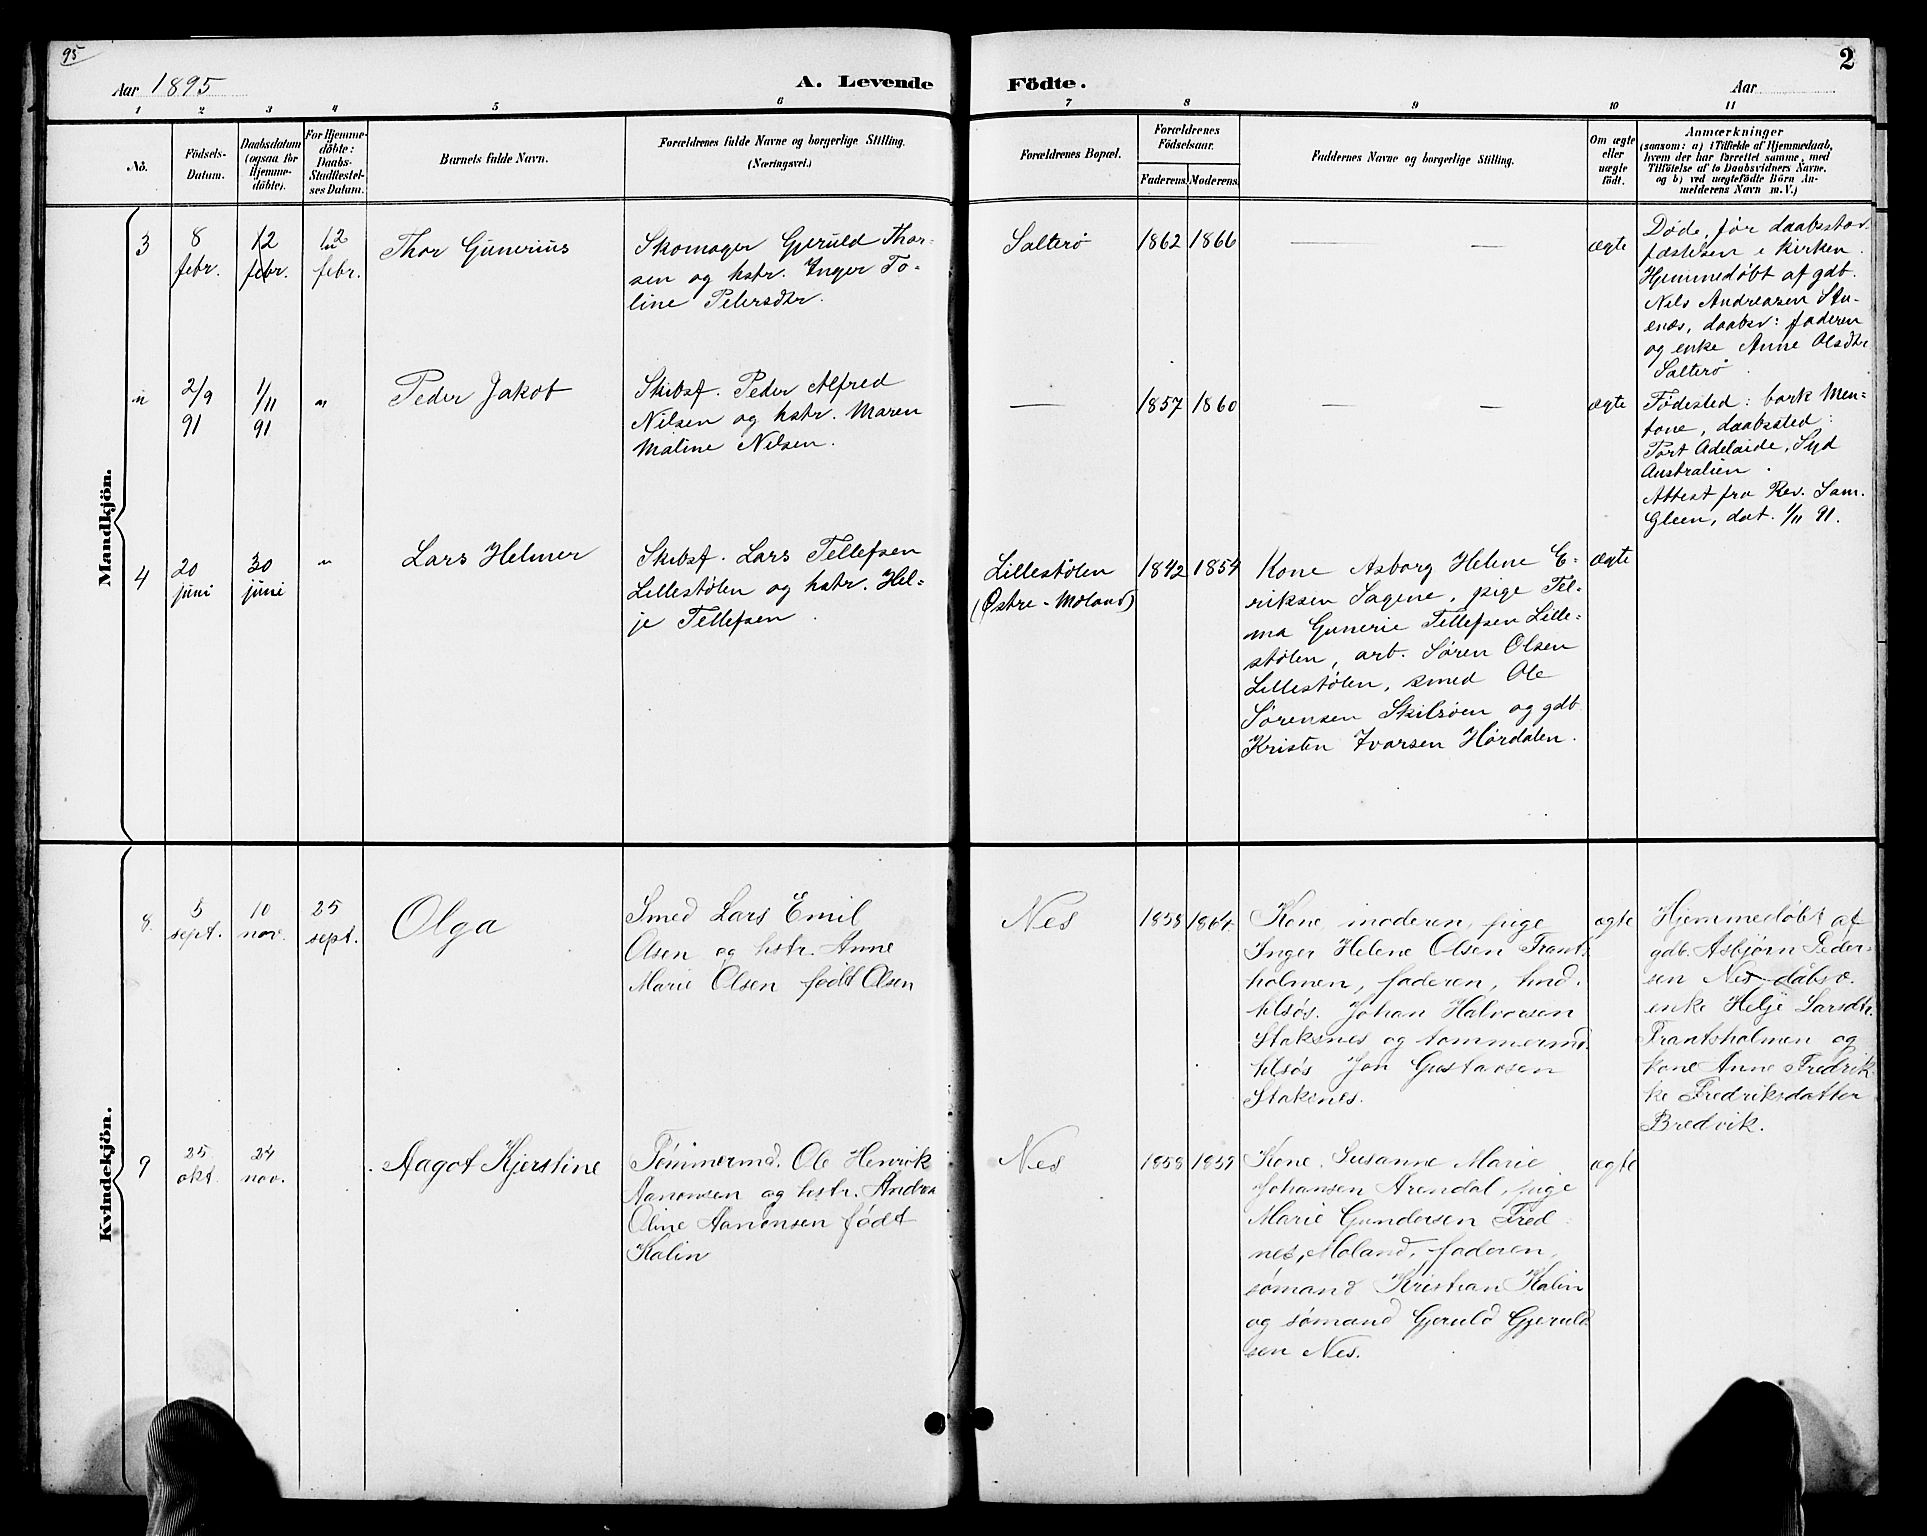 95
2
Aar 1895
A. Levende
Födte.
Aar
1 2 3 4 5 6 7 8 9 10 11
No.
Födsels-
Datum.
Daabsdatum
(ogsaa for
Hjemme-
döbte).
For Hjemme-
döbte:
Daabs-
Stadfestel-
ses Datum.
Barnets fulde Navn.
Forældrenes fulde Navne og borgerlige Stilling.
(Næringsvei.)
Forældrenes Bopæl.
Forældrenes
Födselsaar.
Faderens.
Moderens.
Faddernes Navne og borgerlige Stilling.
Om ægte
eller
uægte
födt.
Anmærkninger
(saasom: a) i Tilfælde af Hjemmedaab,
hvem der har forrettet samme, med
Tilföielse af to Daabsvidners Navne.
og b) ved uægtefödte Börn An-
melderens Navn m. V.)
Mandkjön.
3
8
febr.
12
febr.
12
febr.
Thor Gunerius
Skomager Gjeruld Thor-
sen og hstr. Inger To-
line Petersdtr.
Salterø
1862
1866
—
—
ægte
Døde, før daabsstad-
fæstelsen i kirken.
Hjemmedøbt af gdb.
Nils Andreasen Stu-
enes, daabsv: faderen
og enke Anne Olsdtr
Salterø
"
2/9
91
1/11
91
"
Peder Jakob
Skibsf. Peder Alfred
Nilsen og hstr. Maren
Maline Nilsen.
—
1857
1860
—
—
ægte
Fødested: bark Men-
tone, daabssted:
Port Adelaide, Syd
Australien.
Attest fra Rev. Sam.
Gleen, dat. 1/11 91.
4
20
juni
30
juni
"
Lars Helmer
Skibsf. Lars Tellefsen
Lillestølen og hstr. Hel-
je Tellefsen.
Lillestølen
(Østre-Moland)
1842
1854
Kone Asborg Helene E-
riksen Sagene, pige Tel-
ma Gunerie Tellefsen Lille-
stølen, arb. Søren Olsen
Lillestølen, smed Ole
Sørensen Skilsøen og gdb
Kristen Ivarsen Hørdalen.
ægte
Kvindekjön.
8.
5
sept.
10
nov.
25
sept.
Olga
Smed Lars Emil
Olsen og hstr. Anne
Marie Olsen født Olsen
Nes
1858
1864.
Kone, moderen, pige
Inger Helene Olsen Frants
holmen, faderen,
Johan Halvorsen
Staksnes og tømmermd.
Jon Gustavsen
Staksnes.
ægte
Hjemmedøbt af
gdb. Asbjørn Peder-
sen Nes dåbsv.
enke Helje Larsdtr.
Frantsholmen og
kone Anne Fredrik-
ke Fredriksdatter
Bredvik.
9
25
okt.
24
nov.
Aagot Kjerstine
Tømmermd. Ole Henrik
Aanonsen og hstr. Andrea
Oline Aanonsen født
Kalin
Nes
1858
1859
Kone Susanne Marie
Johansen Arendal, pige
Marie Gundersen Fred-
nes, Moland, faderen,
sømand Kristian Kalin
og sømand Gjeruld Gjeruld
sen Nes.
ægte